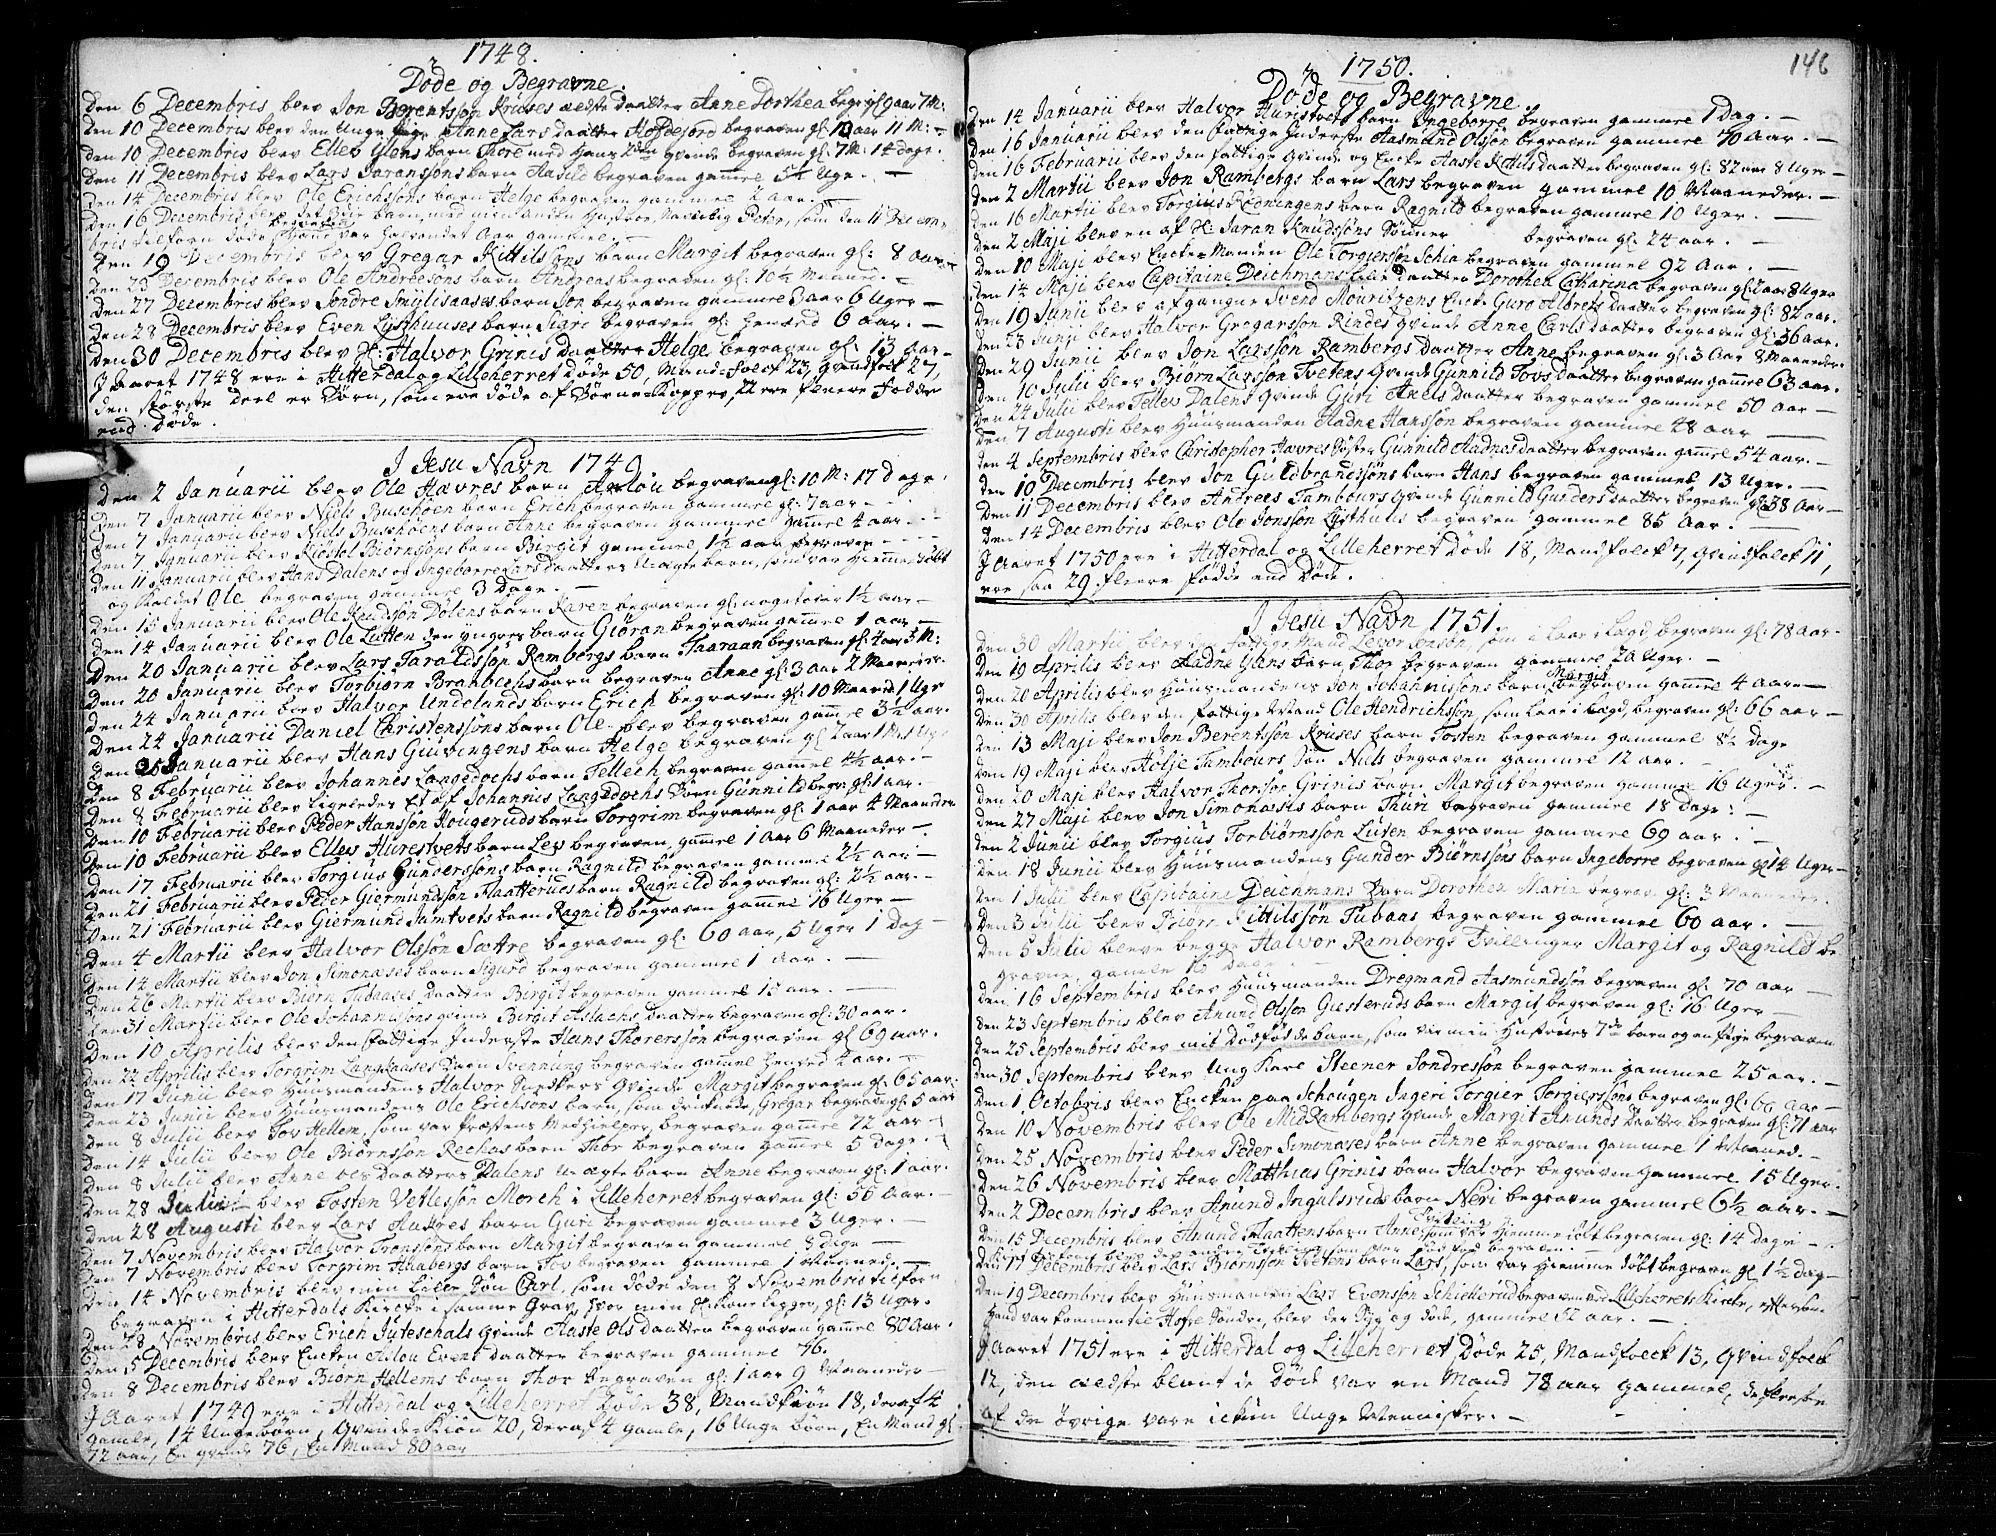 1748.
Døde og Begravne.
Den 6 Decembris blev Jon Berentssøn Kruses ældste daatter Anne Dorthea begr: gl 9 aar 7 M:
Den 10 Decembris blev den Unge Pige Anne Lars daatter Hofdejord begraven gl: 10 aar 11 M: -
Den 10 Decembris blev Ellev Ylens barn Thore med Hans 2den Qvinde begraven gl: 7 M: 14 dage.
Den 11 Decembris blev Lars Jaranssøns barn Haslie begraven gamel 5½ Uge. -
Den 14 Decembris blev Ole Erichssøns barn Helge begraven gammel 2 aar. -
Den 16 Decembris blev det barn, med min anden Hustroe, Navnlig Peter, som den 11 Decem-
bris tilforn døde begraven Hand var halvandet Aar gammel. -
Den 19 Decembris blev Gregar Kittilsøns barn Margit begraven gl: 8 aar
Den 23 Decembris blev Ole Andreesøns barn Andreas begraven gl: 10½ Maaned. -
Den 27 Decembris blev Sondre Smylisaases barn Jon begraven gammel 3 aar 6 Uger -
Den 28 Decembris blev Even Lysthuuses barn Sigri begraven gl: henved 6 aar. -
Den 30 Decembris blev Hr: Halvor Grinis daatter Helge begraven gl: 13 aar -
J Aaret 1748 ere i Hitterdal og Lilleherret døde 50, Mandfolck 23, Qvindfolck 27,
den største deel er Børn, som ere døde af Børne-Kopper, 22 ere fleere Fødde
end døde.
J Jesu Navn 1749
Den 2 Januarii blev Ole Hævres barn Aslou begraven gl: 10 M: 17 Dage.
Den 7 Januarii blev Niels Buschøen barn Erich begraven gammel gl: 7 aar -
Den 7 Januarii blev Niels Buschøens barn Anne begraven gammel 4 aar. - -
Den 7 Januarii blev Kiøstol Biørnsøns barn Birgit gammel 1½ aar begraven - - -
Den 11 Januarii blev Hans Dalens og Ingeborre Lars daatters Uægte barn, som var Hiemme døbt
og kaldet Ole begraven gammel 3 Dage. -
Den 15 Januarii blev Ole Knudssøn Dølens barn Karen begraven gl: noget over 1½ aar -
Den 14 Januarii blev Ole Lutten den yngres barn Giøran begraven gamel 1 aar -
Den 20 Januarii blev Lars Taraldssøn Rambergs barn Taaraan begraven gl: 4 aar 3 M:
Den 20 Januarii blev Torbiørn Brambechs barn begraven Anne gl: 3 aar 2 Maaneder.
Den 24 Januarii blev Halvor Undelands barn Erich begraven gl: 10 Maaned 1 Uge
Den 24 Januarii Daniel Christenssøns barn Ole blev begraven gamel 3½ aar.
Den 25 Januarii blev Hans Giuvingens barn Helge begraven gl: 2 aar 1 M: 1 Uge
Den 8 Februarii blev Johannes Langedochs barn Tellech begraven gamel 4½ aar. -
Den 8 Februarii blev Ligeledes Et af Johannis Langedochs Børn Gunnild begr: gl: 1 aar.
Den 10 Februarii blev Peder Hanssøn Kougeruds barn Torgrim begraven gl: 1 aar 4 Maaneder
Den 10 Februarii blev Ellev Hurestvets barn Lev begraven, gammel 1 Aar 6 Maaneder -
Den 17 Februarii blev Torgius Gunderssøns barn Ragnild begraven gammel 2½ aar -
Den 21 Februarii blev Peder Giermundssøn Flaatterues barn Ragnild begraven gl: 2½ aar. -
Den 21 Februarii blev Giermund Jamtvets barn Ragnild begraven gamel 16 Uger -
Den 4 Martii blev Halvor Olssøn Sætre begraven gl: 60 aar, 5 Uger 1 dag -
Den 14 Martii blev Jon Simonæses barn Sigurd begraven gammel 1 aar. -
Den 26 Martii blev Biørn Tubaases Daatter Birgit begraven gammel 15 aar. -
Den 31 Martii blev Ole Johannissøns Qvinde Birgit Aslachs daatter begraven gl: 30 aar.
Den 10 Aprilis blev den fattige Inderste Hans Thorerssøn begraven gl 69 aar.
Den 22 Aprilis blev Torgrim Langaases Barn Svennung begraven gamel henved 2 aar. -
Den 17 Junii blev Huusmandens Halvor Snedkers Qvinde Margit begraven gl: 65 aar.
Den 23 Junii blev Huusmandens Ole Erichsøns barn, som druknede, Gregar begraven gl: 5 aar
Den 8 Julii blev Tov Hellem, som var Præstens Medhielper, begraven gammel 72 aar -
Den 14 Julii blev Ole Biørnssøn Rechas barn Thor begraven gammel 5 dage. -
Den 8 Julii blev Anne Ols Daatters Dalens Uægte barn Anne begraven gl: 1 aar.
Den 28 Julii blev Tosten Vetlessøn Moreh i Lilleherret begraven gl: 50 Aar. -
Den 28 Augusti blev Lars Hattres barn Guri begraven gammel 3 Uger. -
Den 7 Novembris blev Halvor Tronssøns barn Margit begraven gammel 8 dage -
Den 7 Novembris blev Torgrim Haabergs barn Tov begraven gammel 1 Maaned. -
Den 14 Novembris blev min Lille Søn Carl, som døde den 8 Novembris tilforn
begraven i Hitterdals Kircke i samme Grav, hvor min Sl: Kone ligger, gl: 13 Uger.
Den 28 Novembris blev Erich Juteschals Qvinde Aaste Ols Daatter begraven gammel 80 Aar.
Den 5 Decembris blev Encken Aslou Evens daatter begraven gammel 76.
Den 8 Decembris blev Biørn Hellems barn Thor begraven gl: 1 aar 9 Maaneder
J Aaret 1749 ere i Hitterdal og Lilleherret døde 38, Mandkiøn 18, deraf 4
gamle, 14 Unge børn, Qvinde-Kiøn 20, deraf 4 gamle, 16 Unge børn, En Mand gl:
72 aar, En Qvinde 76, En Mand 80 aar
146
1750.
Døde og Begravne
Den 14 Januarii blev Halvor Huristvets barn Ingeborre begraven gammel 1 Dag. -
Den 16 Januarii blev den fattige Inderste Aasmund Olssøn begraven gammel 70 Aar. -
Den 16 Februarii blev den fattige Qvinde og Encke Aaste Kaals daatter begraven gl: 82 aar 8 Uger -
Den 2 Martii blev Jon Rambergs barn Lars begraven gammel 10 Maaneder. -
Den 16 Martii blev Torgius Rødningens barn Ragnild begraven gammel 10 Uger. -
Den 2 Maji blev en af Hr: Jaran Knudssøns Sønner begraven gl: 24 aar. -
Den 10 Maji blev Encke-Manden Ole Torgierssøn Schia begraven gammel 92 Aar. -
Den 14 Maji blev Capitaine Deichmans Lille Daatter Dorothea Catharina begraven gl: 2 aar 8 Uger
Den 19 Junii blev afgangne Svend Mouritzens Encke Guro Albrets daatter begraven gl: 82 aar.
Den 23 Junii blev Halvor Gregarssøn Rindes Qvinde Anne Carls daatter begraven gl: 36 aar.
Den 29 Junii blev Jon Larssøn Rambergs daatter Anne begraven gl: 3 Aar 8 Maaneder.
Den 10 Julii blev Biørn Larssøn Tvetens Qvinde Gunnild Tovs daatter begraven gamel 63 aar.
Den 24 Julii blev Tellev Dalens Qvinde Guri Axels daatter begraven gammel 50 aar -
Den 7 Augusti blev Huusmanden Hadne Hanssøn begraven gammel 48 aar -
Den 4 Septembris blev Christopher Hævres Søster Gunnild Aadnes daatter begraven gamel 54 aar. -
Den 10 Decembris blev Jon Guldbrandssøns barn Hans begraven gammel 13 Uger. -
Den 11 Decembris blev Andrees Tambours Qvinde Gunnild Gusders daatter begraven gl: 38 Aar -
Den 14 Decembris blev Ole Jonssøn Lysthuus begraven gammel 85 aar. -
J Aaret 1750 ere i Hitterdal og Lilleherret Døde 18, Mandfolck 7, Qvindfolck 11,
ere saa 29 fleere fødde end Døde.
J Jesu Navn 1751.
Den 30 Martii blev den fattige Mand Levor Jonsøn, som i Laar i Lægd, begraven gl: 78 aar.
Den 19 Aprilis blev Hadne Ylens barn Thor begraven gammel 20 Uger. -
Den 20 Aprilis blev Huusmandens Jon Johannissøns barn Margit begraven gamel 4 aar -
Den 30 Aprilis blev den fattige Mand Ole Hendrichssøn, som Laae i Lægd, begraven gl: 66 aar -
Den 13 Maji blev Jon Berentssøn Kruses barn Tosten begraven gammel 8½ dage
Den 19 Maji blev Hølje Tambours Søn Niels begraven gammel 12 aar. -
Den 20 Maji blev Halvor Thorsøn Grinis barn Margit begraven gammel 16 Uger. -
Den 27 Maji blev Jon Simonæsis barn Thuri begraven gammel 18 dage: -
Den 2 Junii blev Torgius Torbiørnssøn Luten begraven gammel 69 aar. -
Den 18 Junii blev Huusmandens Gunder Biørnssøns barn Ingeborre begraven gl 14 Uger -
Den 1 Julii blev Capitaine Deichmans Barn Dorothea Maria begrav: gl: 3 Maaneder.
Den 3 Julii blev Biørn Kittilssøn Tubaas begraven gammel 60 aar. -
Den 5 Julii bleve begge Halvor Rambergs Tvillinger Margit og Ragnild be
gravne, gamle 15 Dage. -
Den 16 Septembris blev Huusmanden Dregmand Aasmundssøn begraven gl: 70 aar -
Den 23 Septembris blev Anund Olssøn Gusteruds barn Margit begraven gl: 16 Uger -
Den 25 Septembris blev mit Dødfødde barn, som var min Hustroes 7de barn og en Pige begraven
Den 30 Septembris blev Ung Karl Steener Sondressøn begraven gammel 25 aar. -
Den 1 Octobris blev Encken paa Schougen Ingeri Torgier Torgierssøns begraven gl: 60 aar -
Den 10 Novembris blev Ole MidRambergs Qvinde Margit Anunds Daatter begraven gl: 71 aar
Den 25 Novembris blev Peder Simonæses barn Anne begraven gammel 1 Maaned. -
Den 26 Novembris blev Matthias Grinis barn Halvor begraven gammel 15 Uger.
Den 2 Decembris blev Anund Ingulsruds barn Neri begraven gammel 6½ aar. -
Den 15 Decembris blev Anund Flaattens barn Anne, Tvilling som var Hiemme døbt begraven gl: 14 dage -
blev den anden Tvilling som var død fød begraven.
Den 17 Decembris blev Lars Biørnssøn Tvetens barn Lars, som var Hiemme døbt begraven gl 1½ dag -
Den 19 Decembris blev Huusmanden Lars Evenssøn Schiellerud begraven ved Lilleherrets Kircke, eftersom
Hand var kommen til Hofre Søndre, blev der Syg og døde, gammel 52 aar. -
J Aaret 1751 ere i Hitterdal og Lilleherret Døde 25, Mandfolck 13, Qvindfolck
12, den ældste blant de Døde var en Mand 78 aar gammel, de fleeste
af de øvrige vare ickun Unge Mennisker. -